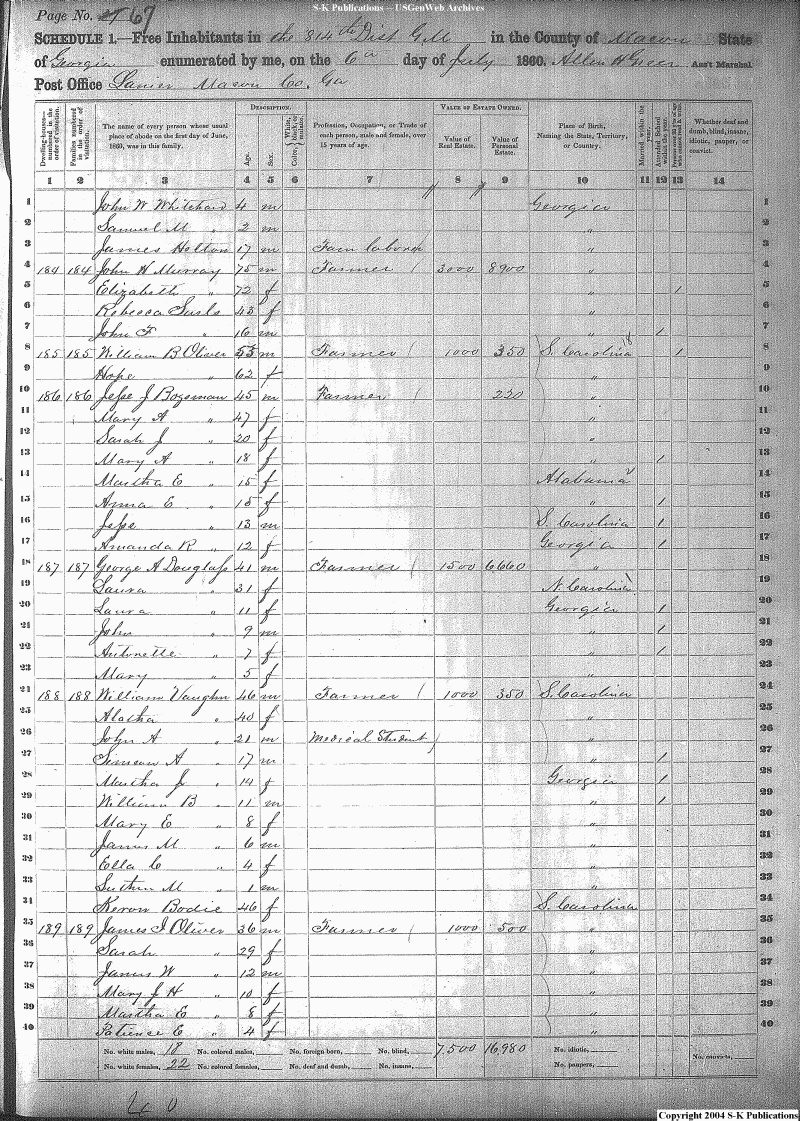 S-K Publications – USGenWeb Archives
Page No. 67
SCHEDULE 1.—Free Inhabitants in the 814th Dist G M in the County of Macon State
of Georgia enumerated by me, on the 6th day of July 1860. Allen H Greer Ass't Marshal
Post Office Lanier Macon Co. Ga
Dwelling-houses—numbered in the order of visitation. Families numbered in the order of visitation. The name of every person whose usual place of abode on the first day of June, 1860, was in this family. DESCRIPTION. Age. Sex. Color, White, black, or mulatto. Profession, Occupation, or Trade of each person, male and female, over 15 years of age. VALUE OF ESTATE OWNED. Value of Real Estate. Value of Personal Estate. Place of Birth, Naming the State, Territory, or Country. Married within the year. Attended School within the year. Persons over 20 y'rs of age who cannot read & write. Whether deaf and dumb, blind, insane, idiotic, pauper, or convict.
1 2 3 4 5 6 7 8 9 10 11 12 13 14
1 John W Whitehead 4 m Georgia 1
2 Samuel M " 2 m " 2
3 James Holton 17 m Farm laborer " 3
4 184 184 John H Murray 75 m Farmer / 3000 8900 " 4
5 Elizabeth " 72 f " / 5
6 Rebecca 43 f " 6
7 John F " 16 m " / 7
8 185 185 William B Oliver 53 m Farmer / 1000 350 S. Carolina / 8
9 Hope " 62 f " 9
10 186 186 Jesse J Bozeman 45 m Farmer / 220 " 10
11 Mary A " 47 f " 11
12 Sarah J " 20 f " 12
13 Mary A " 18 f " / 13
14 Martha E " 15 f Alabama 14
15 Anna E " 15 f " / 15
16 Jesse " 13 m S. Carolina / 16
17 Amanda R " 12 f Georgia / 17
18 187 187 George A Douglass 41 m Farmer / 1500 6660 " 18
19 Laura " 31 f N. Carolina 19
20 Laura " 11 f Georgia / 20
21 John " 9 m " / 21
22 Antonette " 7 f " / 22
23 Mary " 5 f " 23
24 188 188 William Vaughn 46 m Farmer / 1000 350 S. Carolina 24
25 Alatha " 40 f " 25
26 John A " 21 m Medical Student / " 26
27 Simeon A " 17 m " / 27
28 Martha J " 14 f Georgia / 28
29 William B " 11 m " / 29
30 Mary E " 8 f " 30
31 James M " 6 m " 31
32 Ella C " 4 f " 32
33 M " 1 m " 33
34 Keron Bodie 46 f S. Carolina 34
35 189 189 James I Oliver 36 m Farmer / 1000 500 " 35
36 Sarah " 29 f " 36
37 James W " 12 m " 37
38 Mary J H " 10 f " 38
39 Martha E " 8 f " 39
40 Patience E " 4 f " 40
No. white males, 18 No. colored males, No. foreign born, No. blind, 7,500 16,980 No. idiotic, No. convicts,
No. white females, 22 No. colored females, No. deaf and dumb, No. insane, No. paupers,
Copyright 2004 S-K Publications